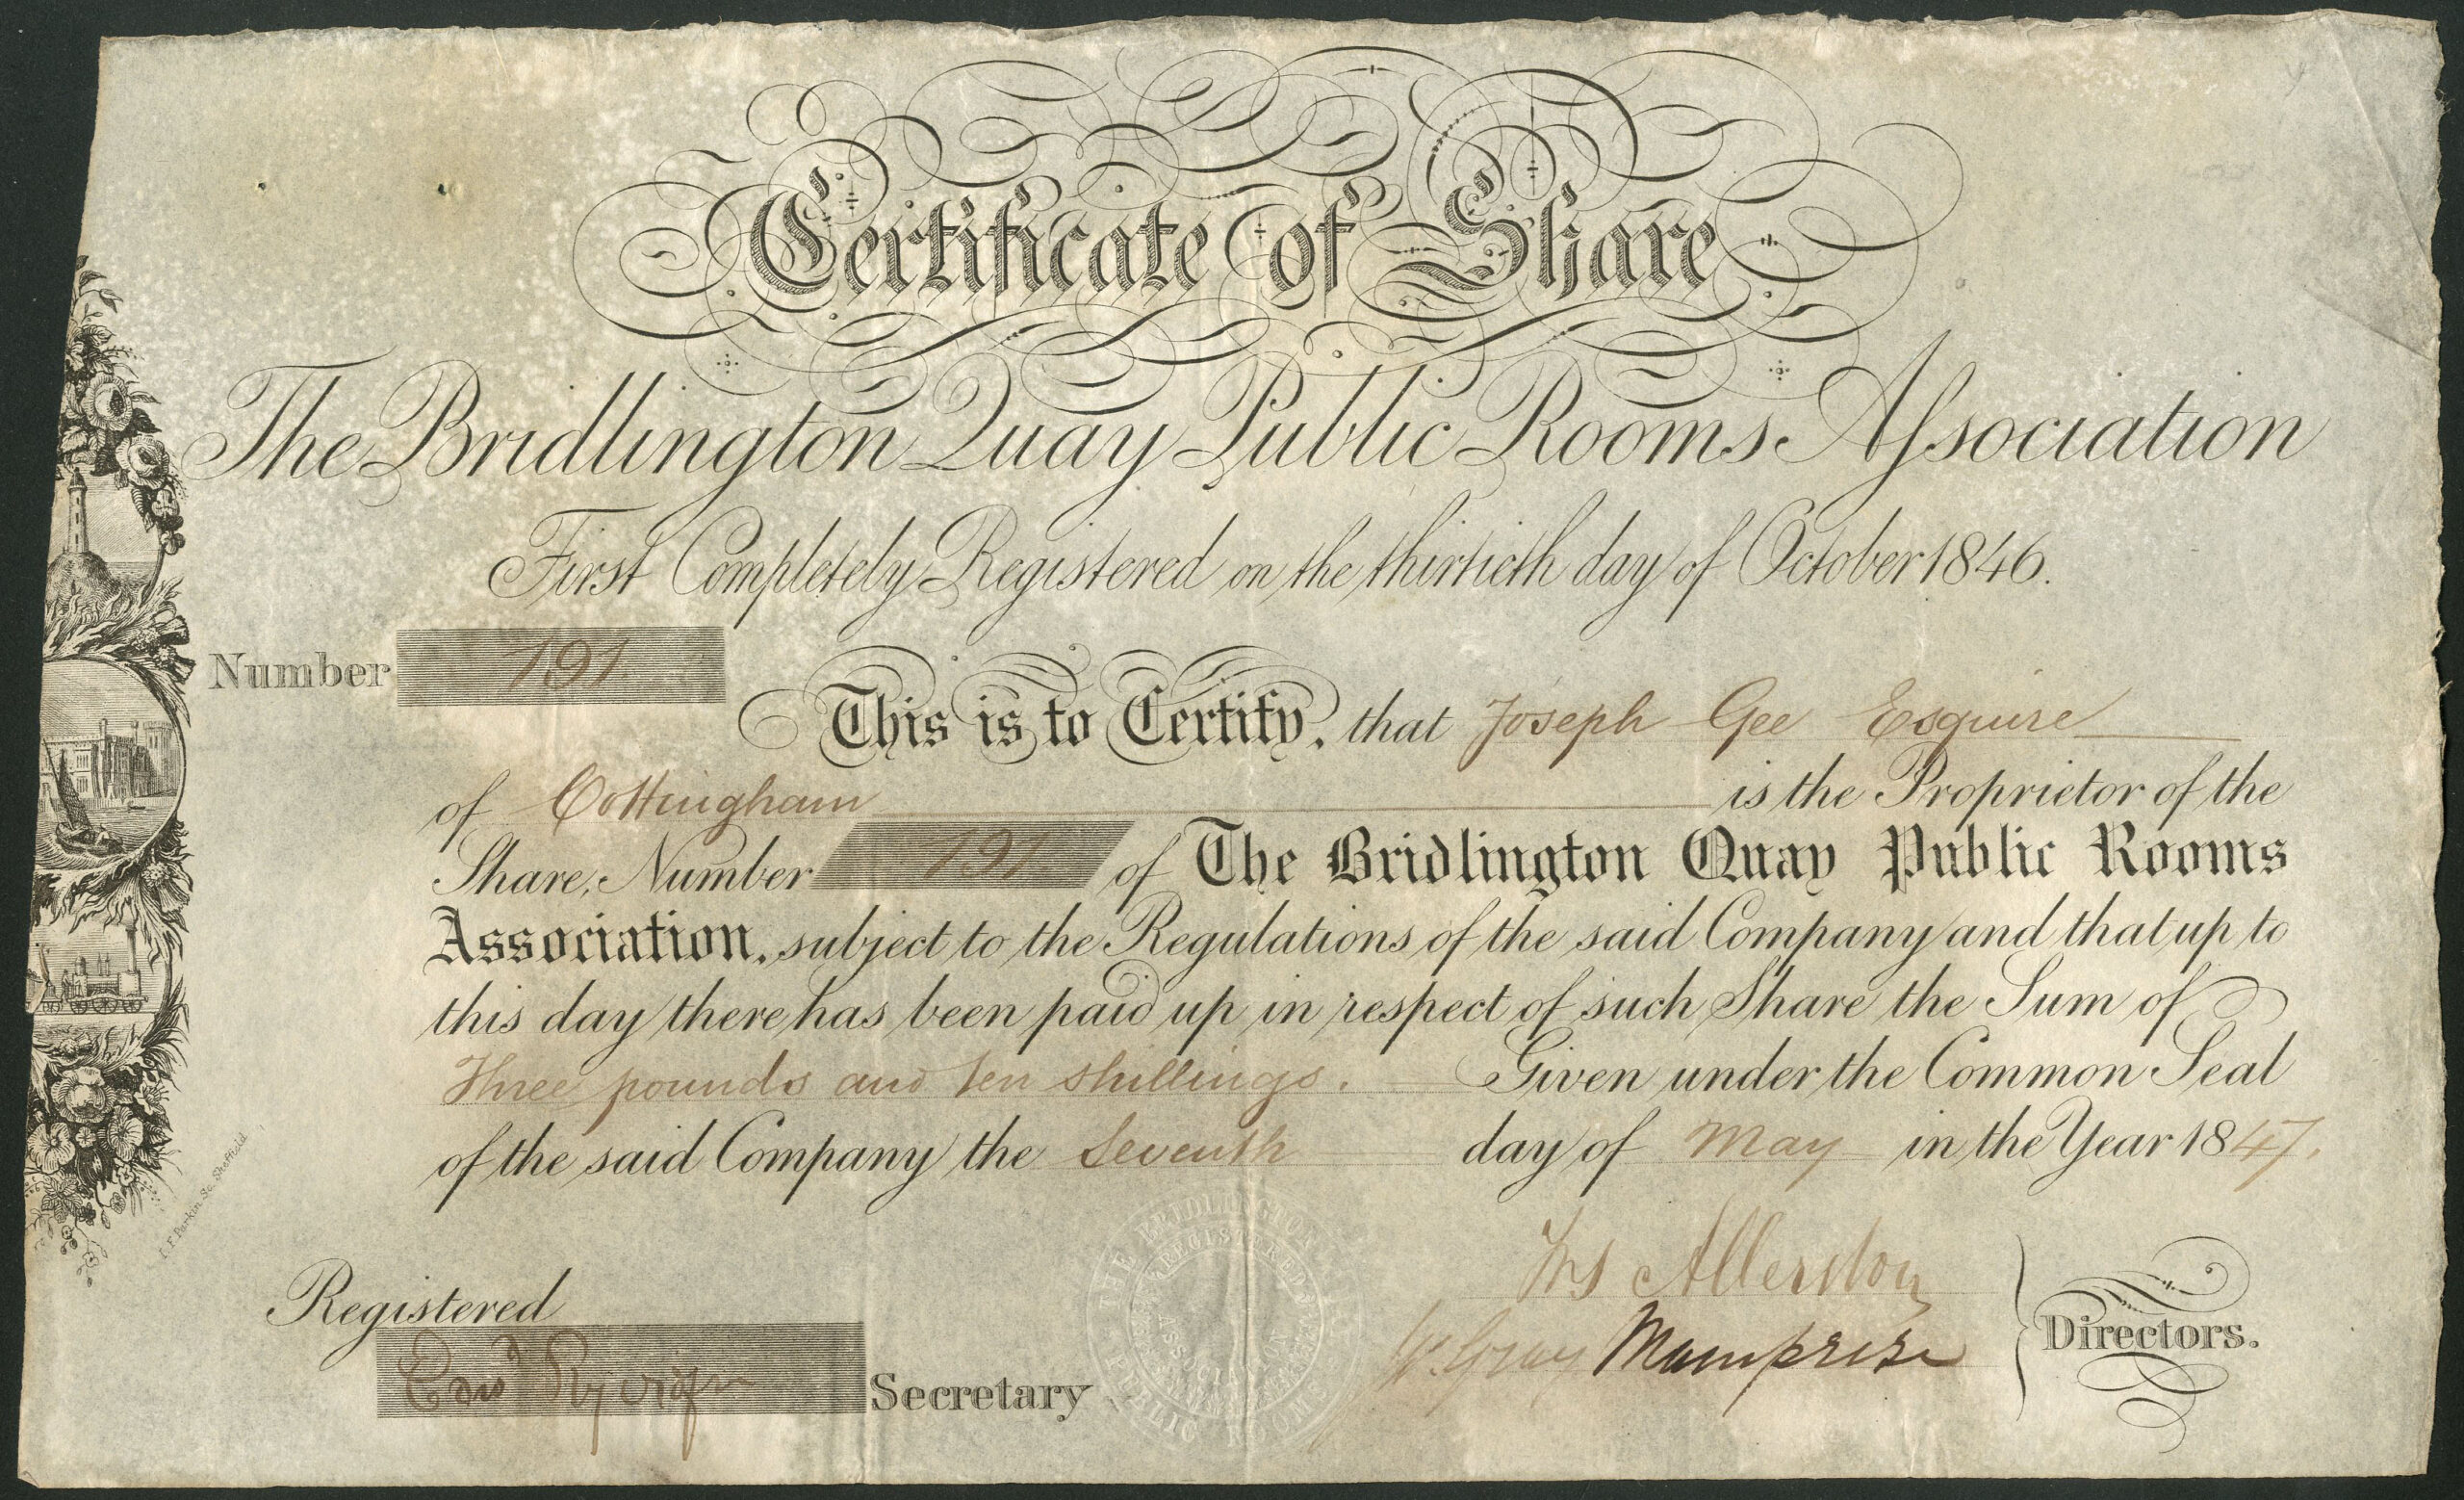 Certificate of Share
The Bridlington Quay Public Rooms Association
First Completely Registered on the thirtieth day of October 1846.
Number 191
This is to Certify, that Joseph Gee Esquire
of Cottingham is the Proprietor of the
Share, Number 191 of The Bridlington Quay Public Rooms
Association, subject to the Regulations of the said Company and that up to
this day there has been paid up in respect of such Share the Sum of
Three pounds and ten shillings. Given under the Common Seal
of the said Company the Seventh day of May in the Year 1847.
Parkin, Sc. Sheffield
THE BRIDLINGTON
REGISTERED
ASSOCIATION
PUBLIC ROOMS
Allerston
Registered
W. Gray
Directors.
Secretary